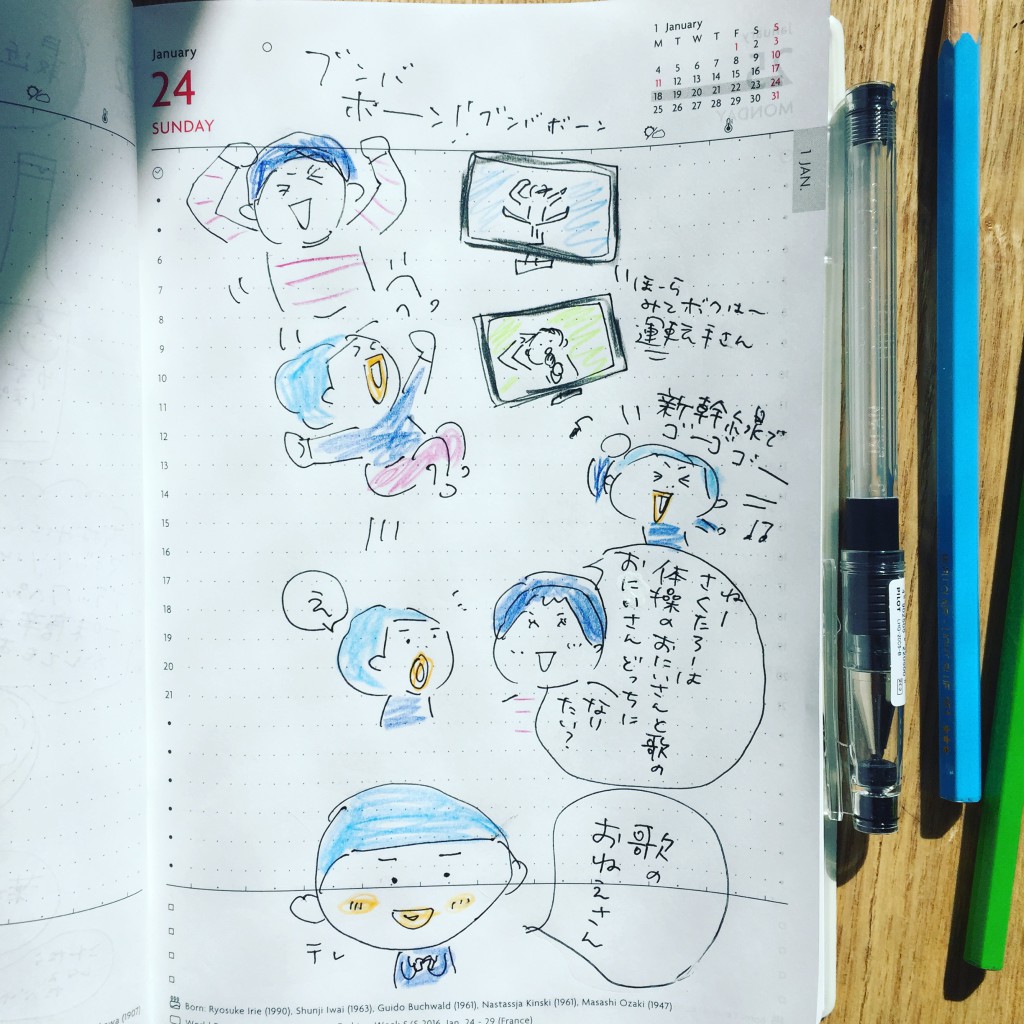 January
24
SUNDAY
1 January
M T W T F S S
1 2 3
4 5 6 7 8 9 10
11 12 13 14 15 16 17
18 19 20 21 22 23 24
25 26 27 28 29 30 31
1 JAN.
ブンバ
ボーン!ブンバボーン
ほーら
みてボクは〜
運転手さん
新幹線で
ゴーゴゴー
6
7
8
9
10
11
12
13
14
15
16
17
18
19
20
21
え
ねー
さくたろーは
体操のおにいさんと歌の
おにいさんどっちに
なり
たい?
歌の
おねえさん
テレ
Born: Ryosuke Irie (1990), Shunji Iwai (1963), Guido Buchwald (1961), Nastassja Kinski (1961), Masashi Ozaki (1947)
S/S 2016, Jan. 24 - 29 (France)
(1907)
PILOT